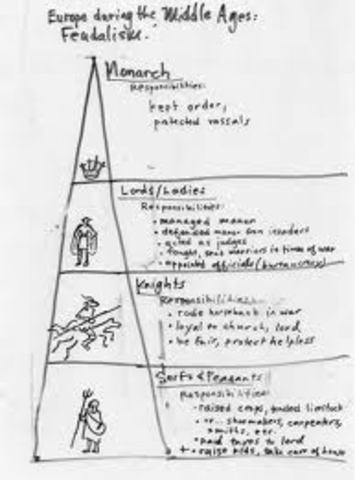 Europe during the Middle Ages:
Feudalism.
Monarch
Responsibilities:
kept order,
patected vassals
Lords/Ladies
Responsibilities:
• managed manor
• defended manor from invaders
• acted as judges
• fought, sent warriors in times of war
• appointed officials (bureaucracy)
Knights
Responsibilities:
• rode horseback in war
• loyal to church, lord
• be fair, protect helpless
Serfs & Peasants
Responsibilities:
• raised crops, tended livestock
• or... shoemakers, carpenters,
smiths, etc.
• paid taxes to lord
• raise kids, take care of house